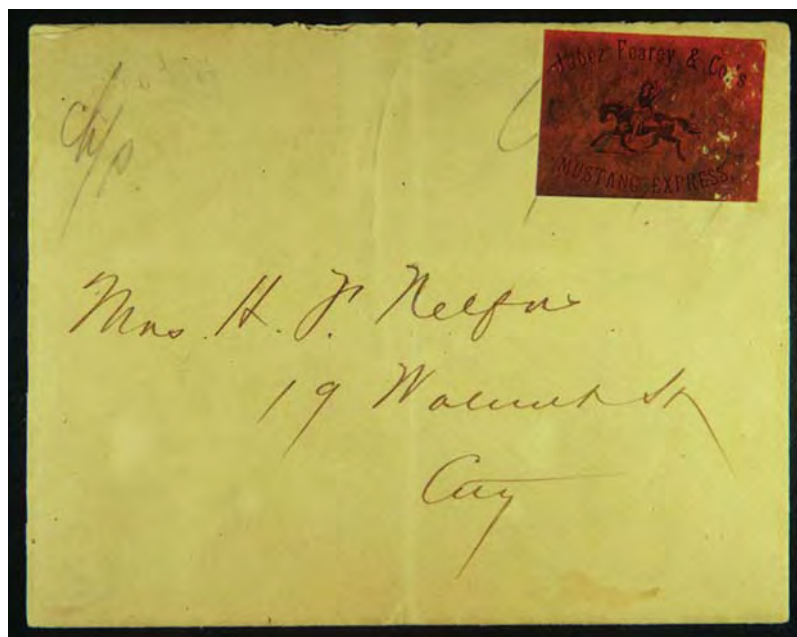 Jabez Fearey & Co.'s
MUSTANG EXPRESS.
ch/p
Mrs. H. F. Nelson
19 Walnut St
City